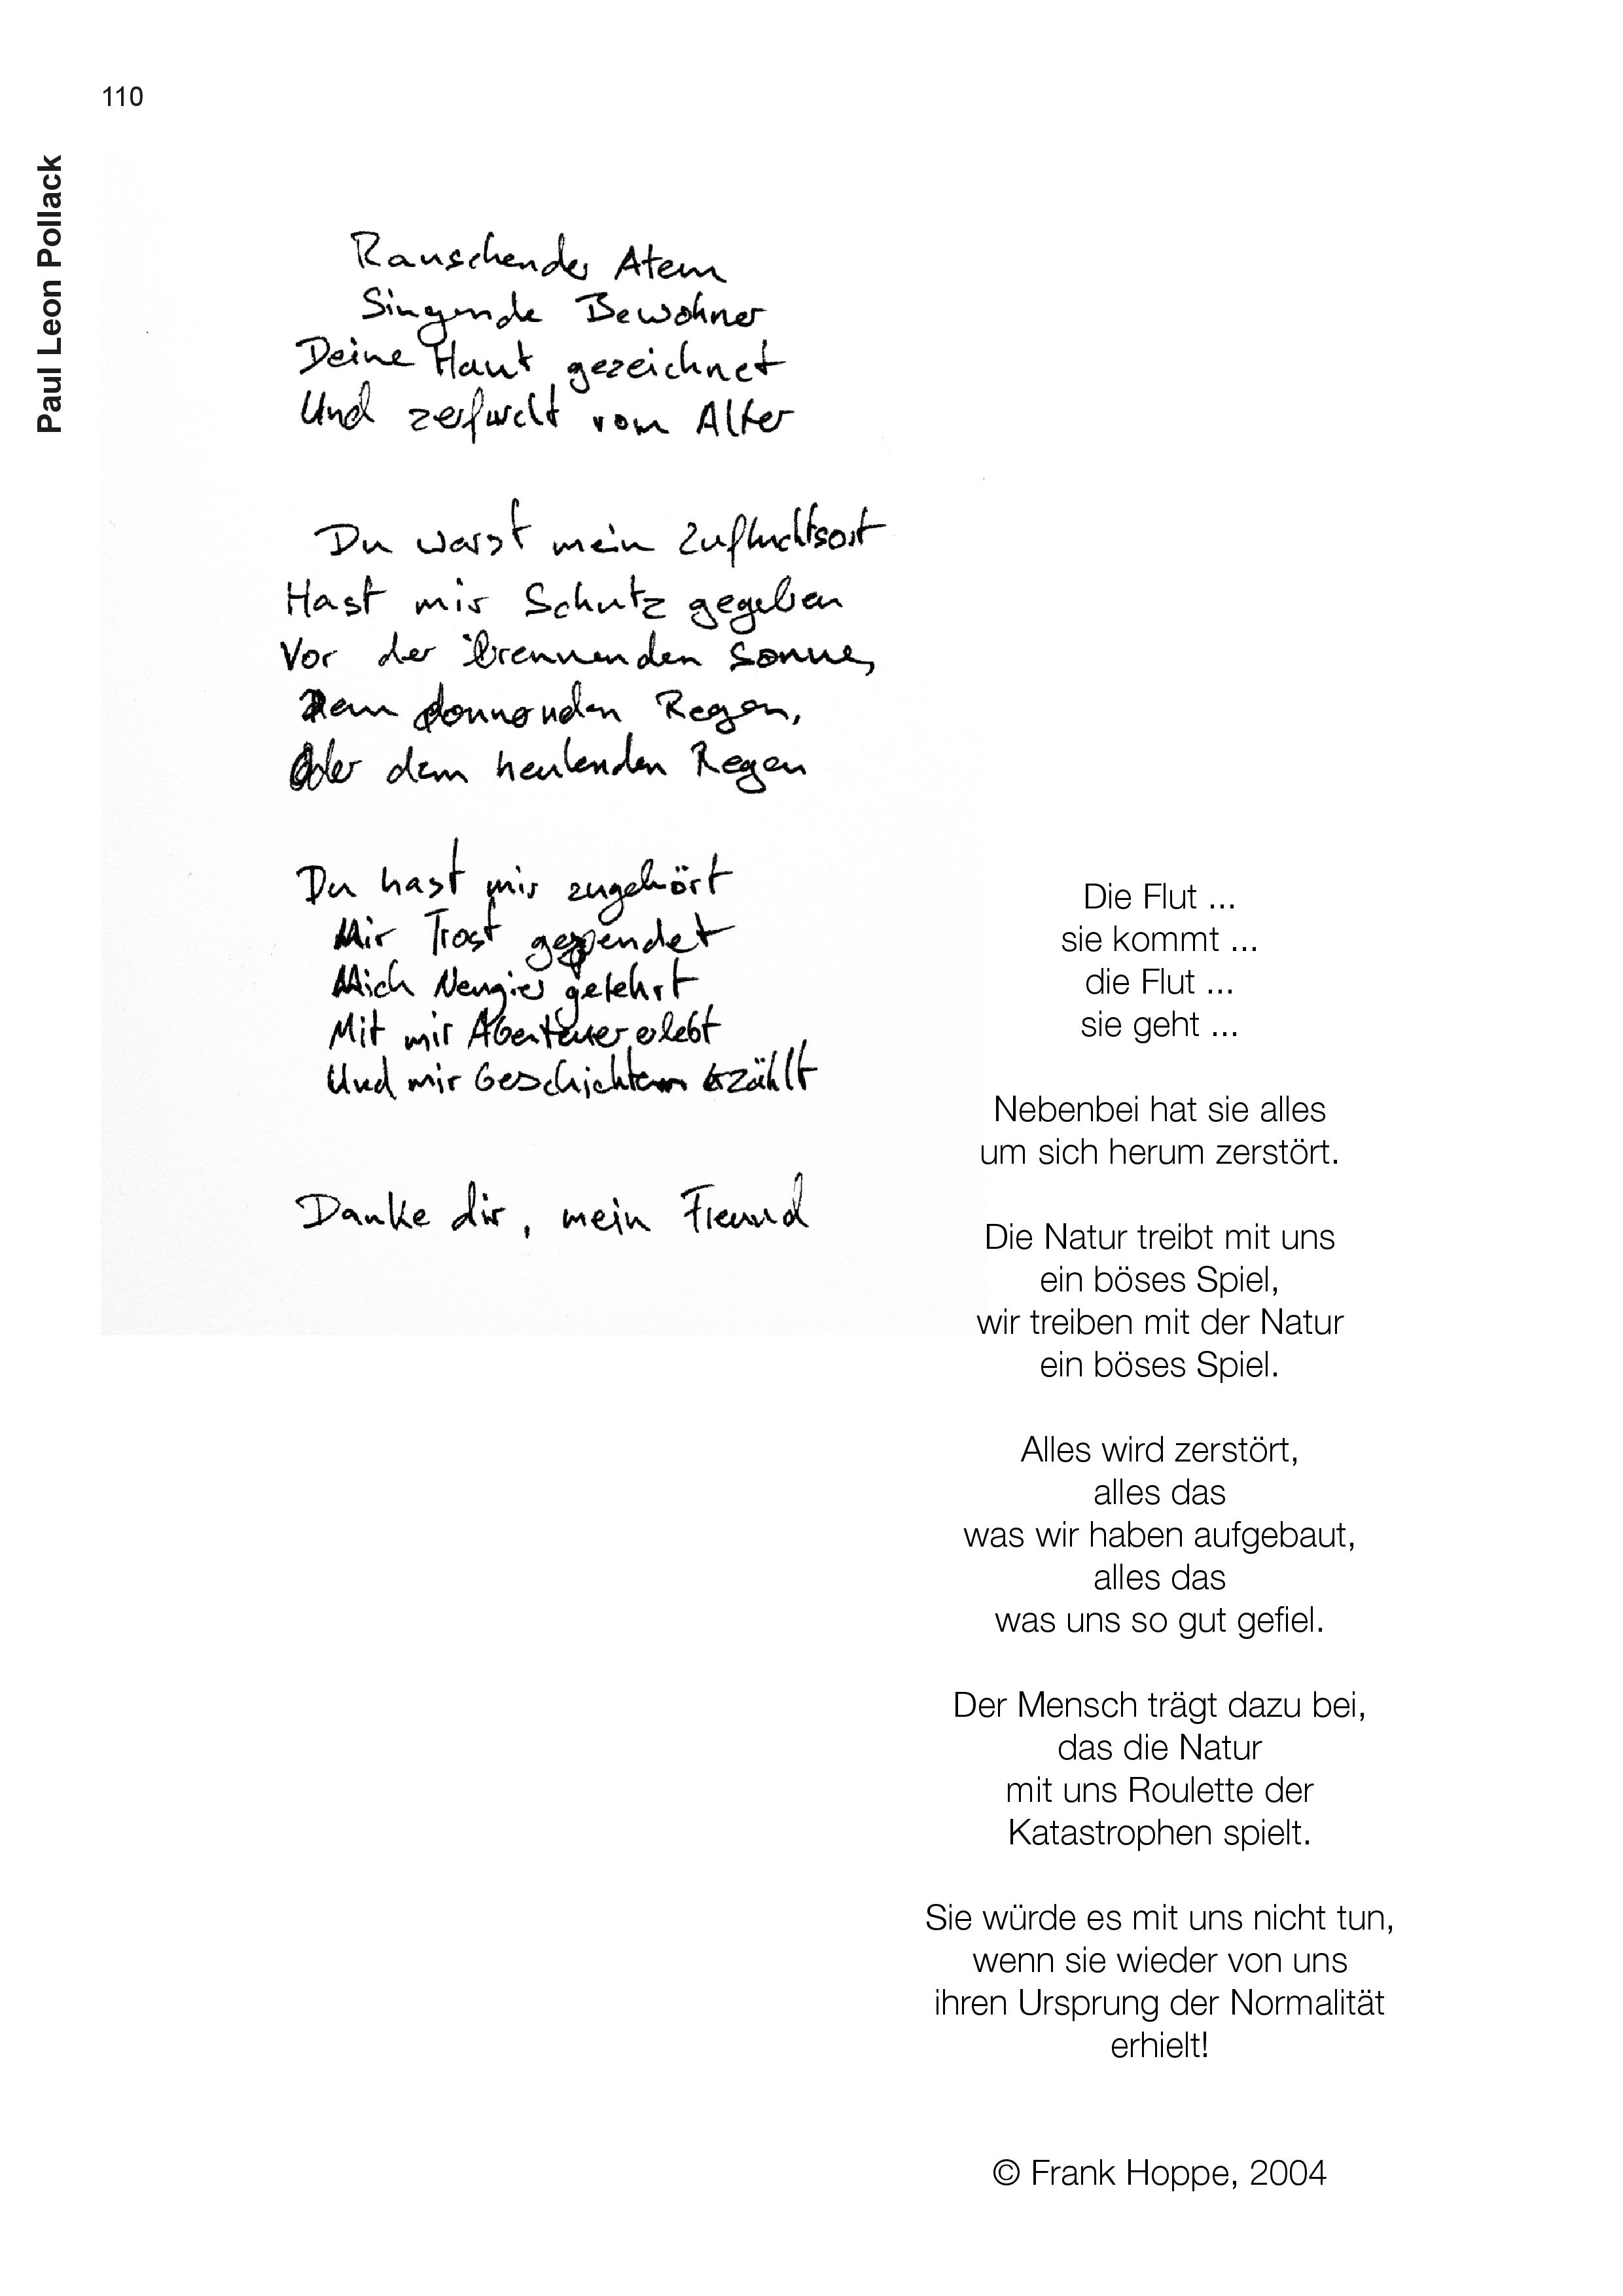 110
Paul Leon Pollack
Rauschender Atem
Singende Bewohner
Deine Haut gezeichnet
Und zerfurcht vom Alter
Du warst mein Zufluchtsort
Hast mir Schutz gegeben
Vor der brennenden Sonne,
Dem donnernden Regen,
Oder dem heulenden Regen
Du hast mir zugehört
Mir Trost gespendet
Mich Neugier gelehrt
Mit mir Abenteuer erlebt
Und mir Geschichten erzählt
Danke dir, mein Freund
Die Flut ...
sie kommt ...
die Flut ...
sie geht ...
Nebenbei hat sie alles
um sich herum zerstört.
Die Natur treibt mit uns
ein böses Spiel,
wir treiben mit der Natur
ein böses Spiel.
Alles wird zerstört,
alles das
was wir haben aufgebaut,
alles das
was uns so gut gefiel.
Der Mensch trägt dazu bei,
das die Natur
mit uns Roulette der
Katastrophen spielt.
Sie würde es mit uns nicht tun,
wenn sie wieder von uns
ihren Ursprung der Normalität
erhielt!
© Frank Hoppe, 2004